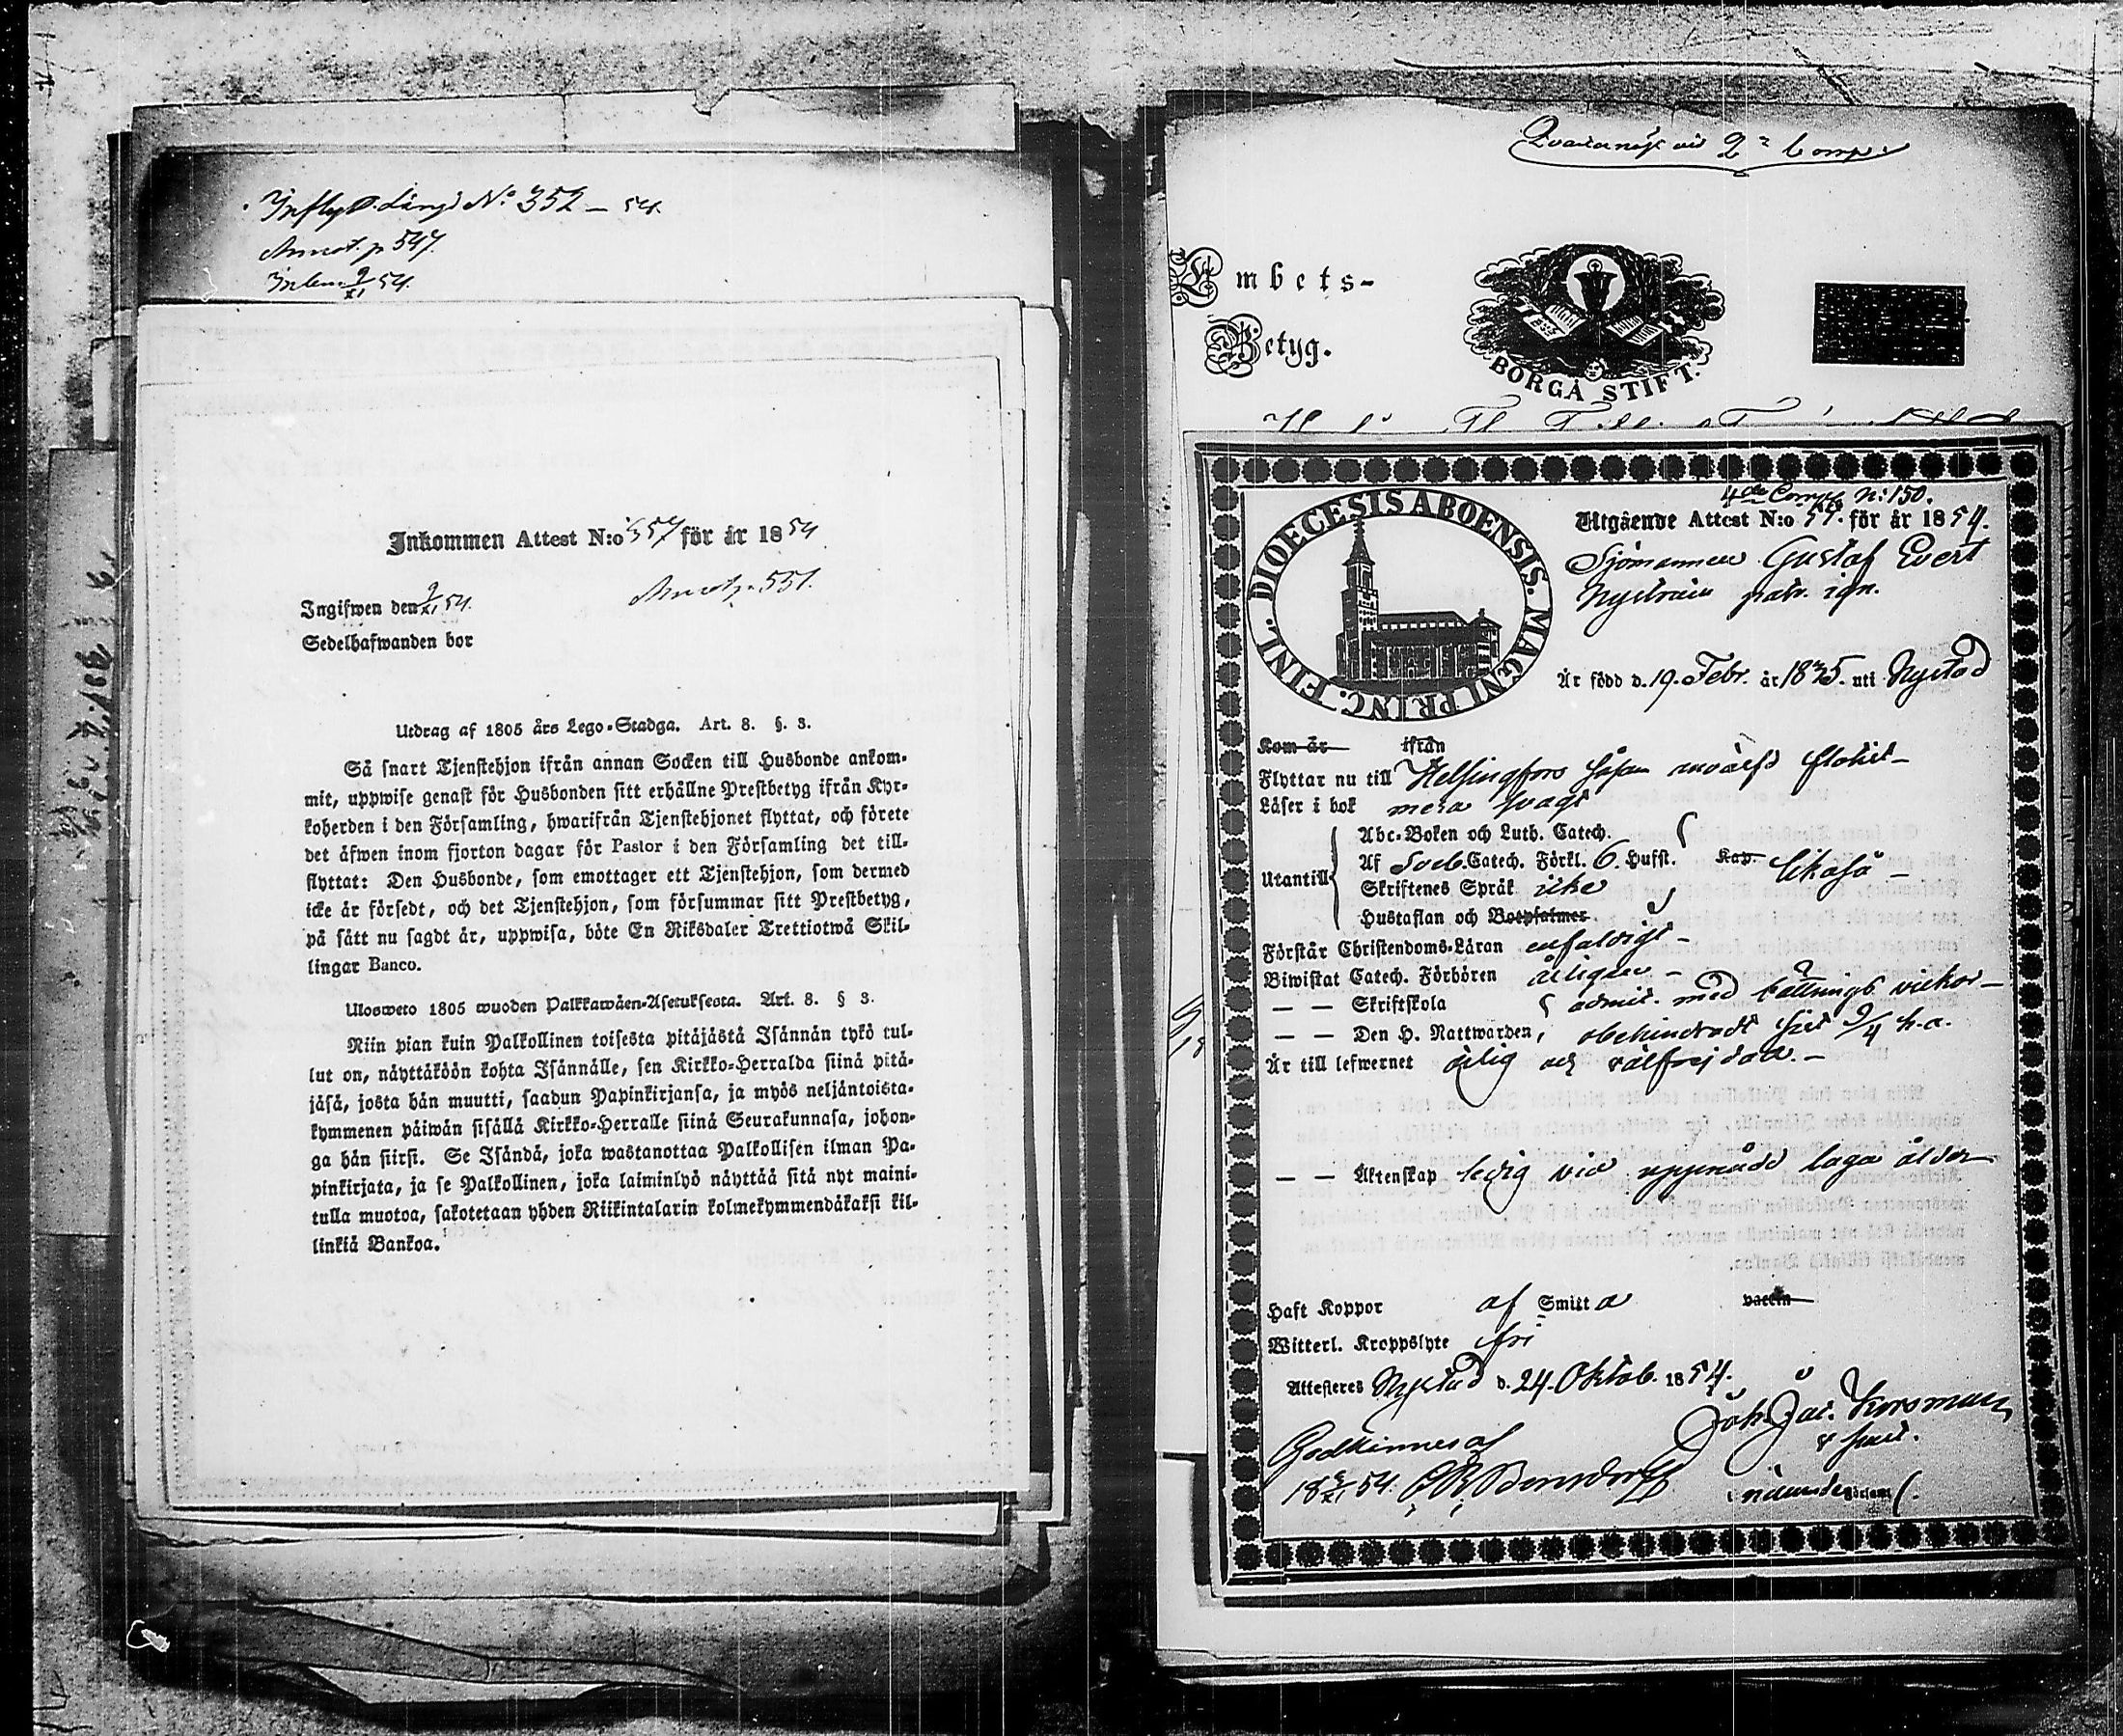 Inflytt. Längd No. 352 – 54.
Annot. p 547.
Inlem. 9/XI 54.
Inkommen Attest N:o 357 för år 1854
Annot p. 551.
Ingifwen den 9/XI 54.
Sedelhafwanden bor
Utdrag af 1805 års Lego-Stadga. Art. 8. §. 3.
Så snart Tjenstehjon ifrån annan Socken till Husbonde ankom-
mit, uppwise genast för Husbonden sitt erhållne Prestbetyg ifrån Kyr-
koherden i den Församling, hwarifrån Tjenstehjonet flyttat, och förete
det äfwen inom fjorton dagar för Pastor i den Församling det till-
flyttat: Den Husbonde, som emottager ett Tjenstehjon, som dermed
icke är försedt, och det Tjenstehjon, som försummar sitt Prestbetyg,
på sätt nu sagdt är, uppwisa, böte En Riksdaler Trettiotwå Skil-
lingar Banco.
Ulosweto 1805 wuoden Palkkawäen-Asetuksesta. Art. 8. § 3.
Niin pian kuin Palkollinen toisesta pitäjästä Isännän tykö tul-
lut on, näyttäköön kohta Isännälle, sen Kirkko-Herralda siinä pitä-
jäsä, josta hän muutti, saadun Papinkirjansa, ja myös neljäntoista-
kymmenen päiwän sisällä Kirkko-Herralle siinä Seurakunnasa, johon-
ga hän siirsi. Se Isändä, joka wastanottaa Palkollisen ilman Pa-
pinkirjata, ja se Palkollinen, joka laiminlyö näyttää sitä nyt maini-
tulla muotoa, sakotetaan yhden Riikintalarin kolmekymmendäkaksi kil-
linkiä Bankoa.
vid 2a Comp.
Embets-
Betyg.
BORGÅ STIFT.
DIOECESIS ABOENSIS. MAGNI PRINC. FINL.
4de Comp. N: 150.
Utgående Attest N:o 57. för år 1854.
Sjömannen Gustaf Evert
Nyström patr. ign.
Är född d. 19. Febr. år 1835. uti Nystad
Kom år ifrån
Flyttar nu till Helsingfors
Läser i bok mera svagt
Abc-Boken och Luth. Catech.
Af Sveb. Catech. Förkl. 6. Hufst. Kap. likaså –
Utantill
Skriftenes Språk icke
Hustaflan och Botpsalmer
Förstår Christendoms-Läran enfaldigt –
Biwistat Catech. Förhören årligen –
— — Skriftskola admit. med villkor –
— — Den H. Nattwarden, obehindradt sist 9/4 h.a.
Är till lefwernet ärlig och välfrejdad. –
— — Äktenskap ledig vid uppnådd laga ålder
Haft Koppor af Smitta vaccin
Witterl. Kroppslyte fri
Attesteres Nystad d. 24. Oktob. 1854.
Joh. Jac.
Godkännes af
18 9/XI 54.